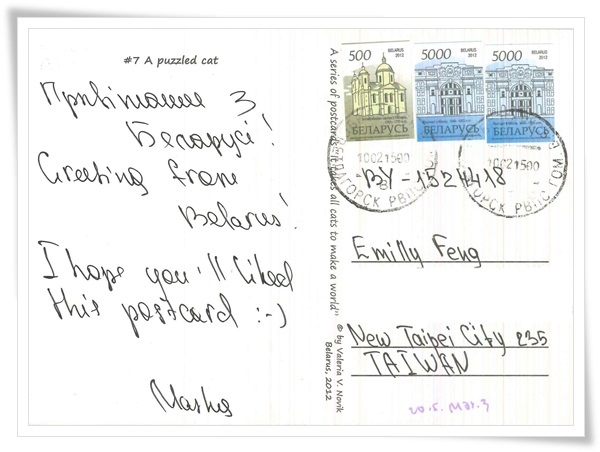 #7 A puzzled cat
Прывітанне з
Беларусі!
Greeting from
Belarus!
I hope you'll likeel
this postcard :-)
Masha
A series of postcards "It takes all cats to make a world"
© by Valeria V. Novik
Belarus, 2012
500
BELARUS
2012
БЕЛАРУСЬ
5000
BELARUS
2012
БЕЛАРУСЬ
5000
BELARUS
2012
БЕЛАРУСЬ
10021500
10021500
BY-1524418
Emilly Feng
New Taipei City 235
TAIWAN
20.5. Mar.3